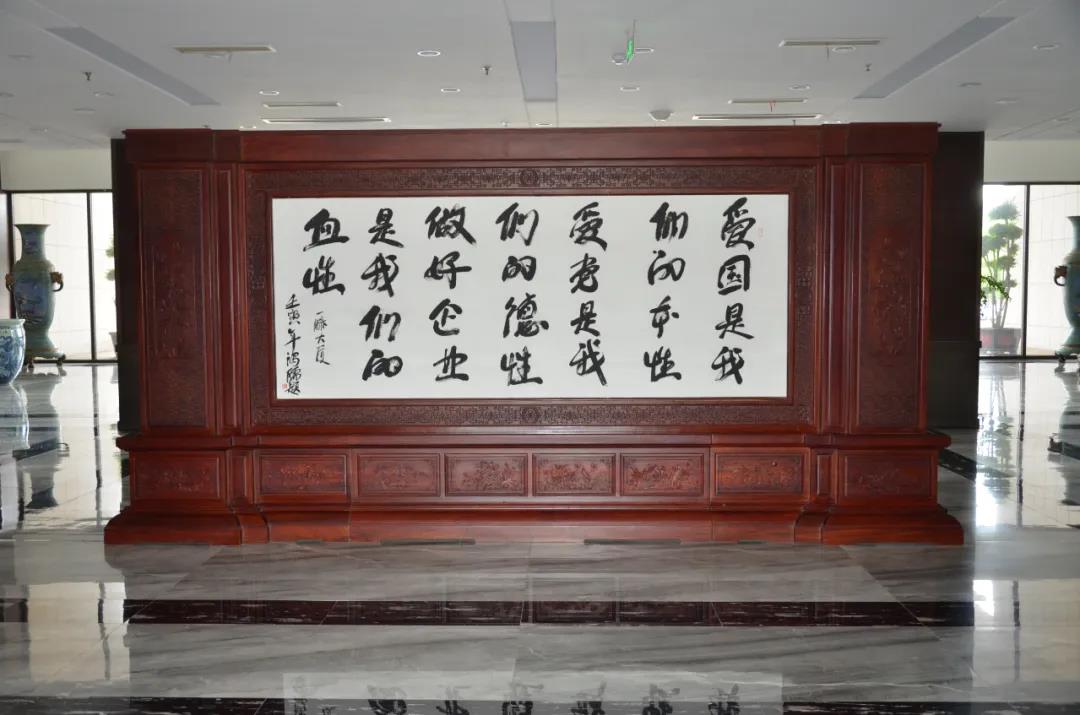 爱国是我
们的本性
爱党是我
们的德性
做好企业
是我们的
血性
一滕大厦
壬寅年鸿儒题